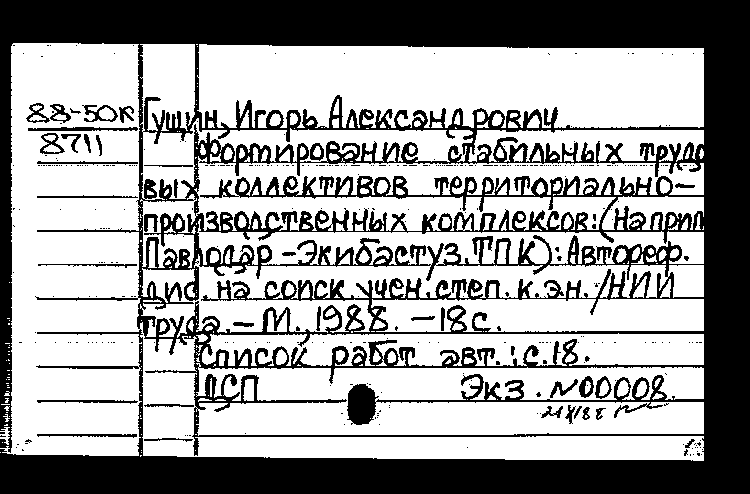 88-50к
8711
Гущин, Игорь Александрович.
Формирование стабильных трудо
вых коллективов территориально-
производственных комплексов: (На прим
Павлодар-Экибастуз. ТПК): Автореф.
дис. на соиск. учен. степ. к. э.н. /НИИ
труда. - М., 1988. - 18 с.
Список работ авт.: с. 18.
ДСП Экз. N00008.